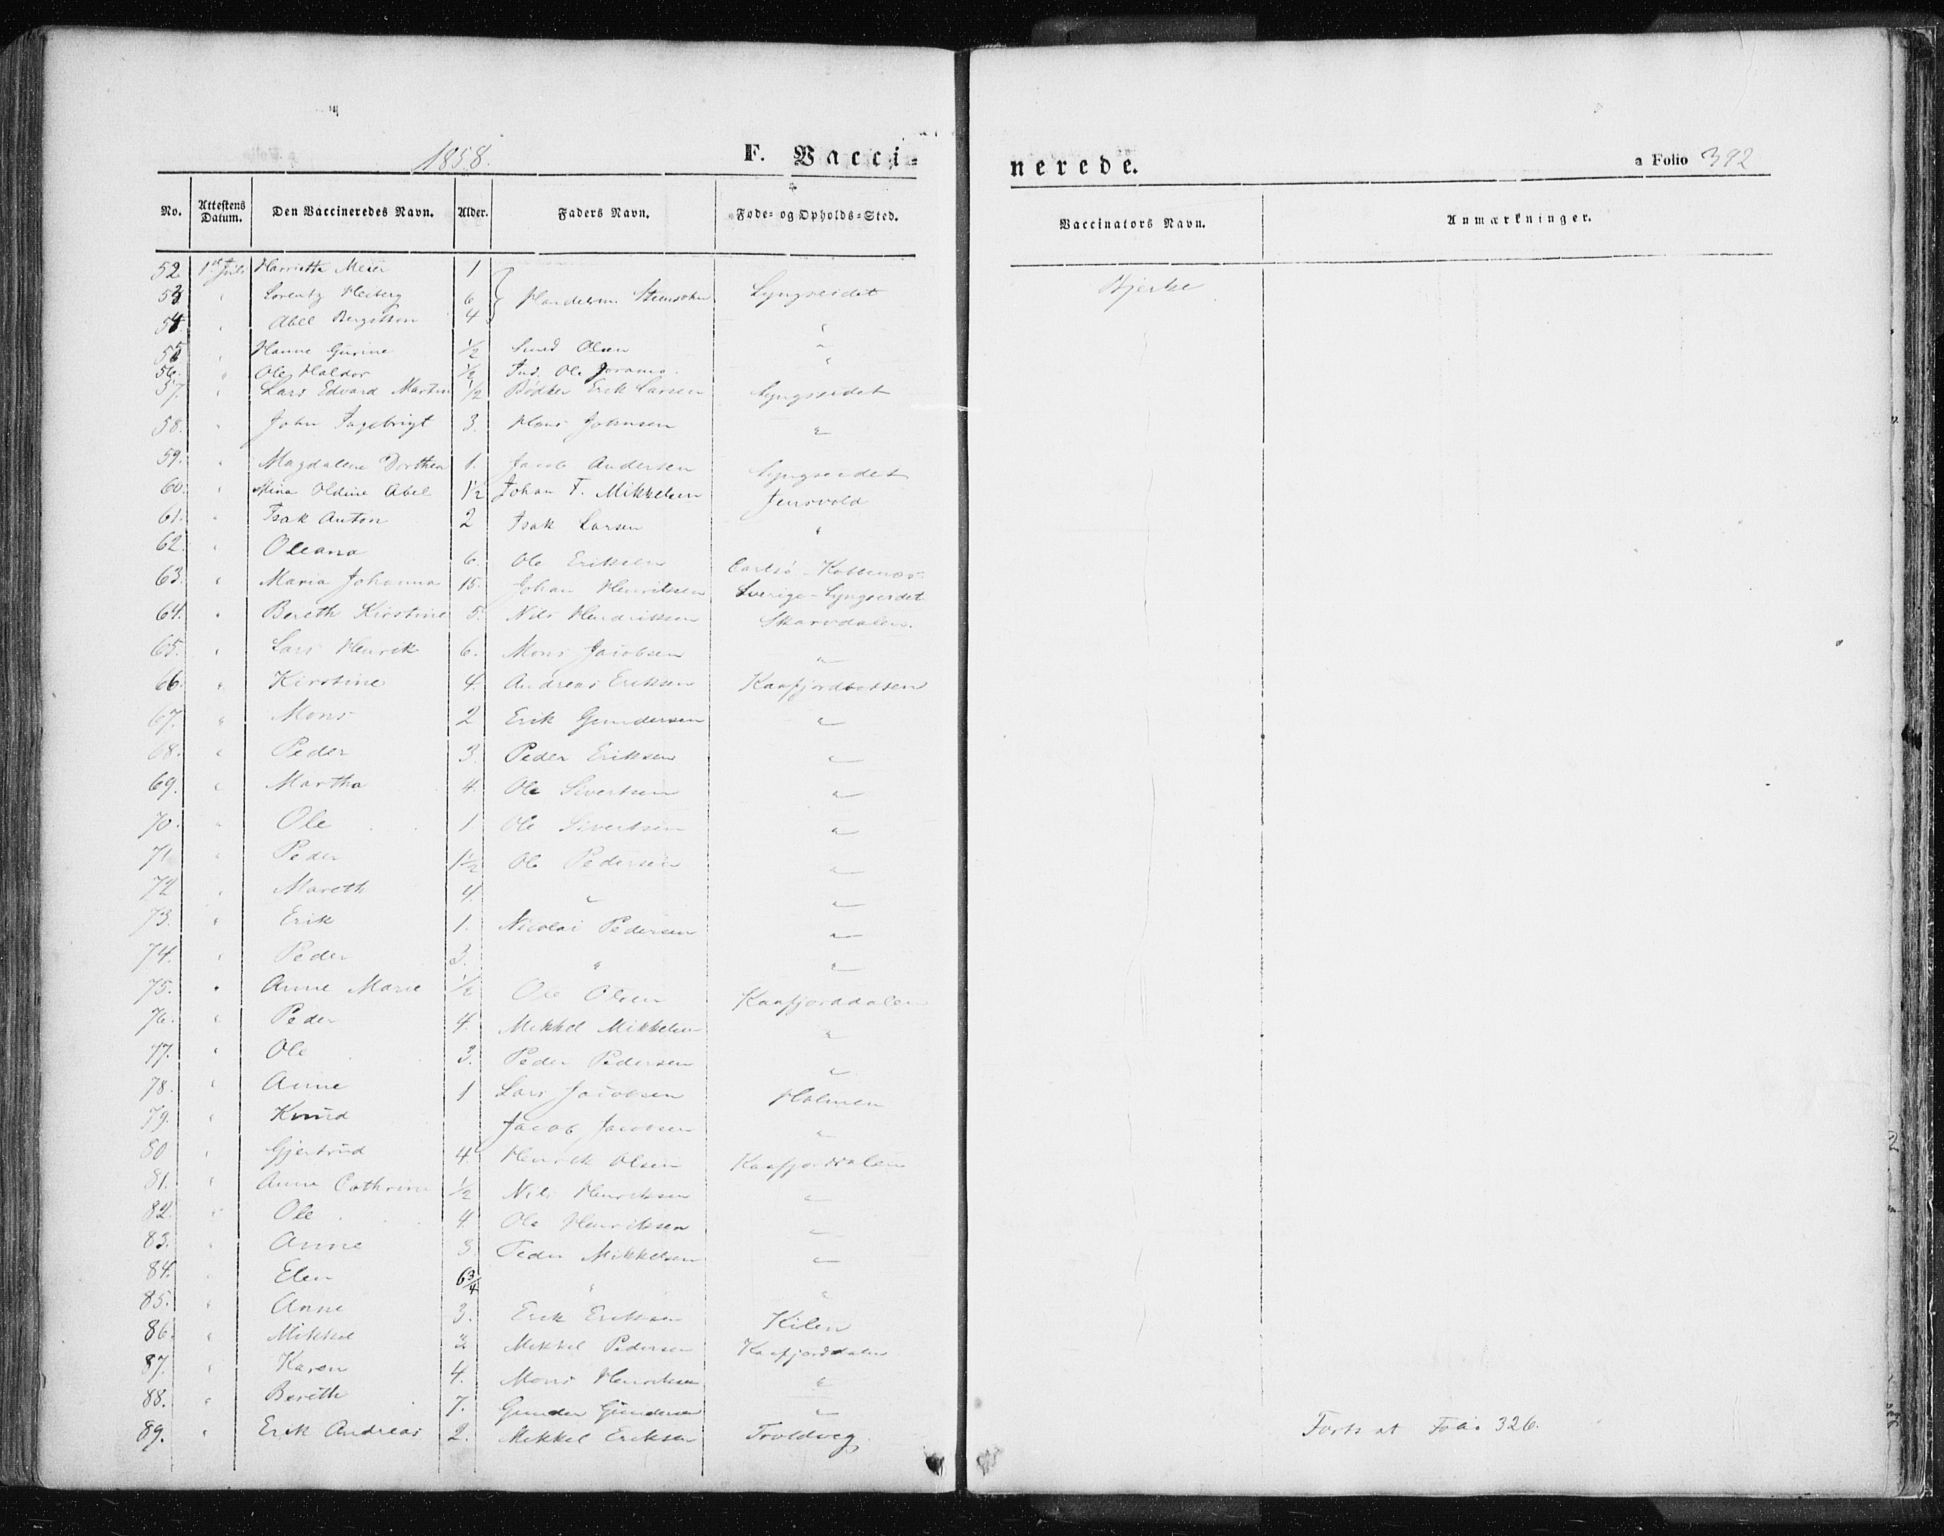 1858.
F. Vacci-
nerede.
a Folio 392
No. Attestens Datum. Den Vaccineredes Navn. Alder. Faders Navn. Føde- og Opholds-Sted. Vaccinators Navn. Anmærkninger.
52. 1st Juli Harriette Meier 1
53. " Lorentz Heiberg 6 Lyngseidet Bjerke
54. " Abel 4 "
55. " Hanne Gurine 1/2 Olsen "
56. " Ole Haldor 1/2 Ole "
57. " Lars Edvard Martin 1/2 Bødker Erik Larsen Lyngseidet
58. " John Ingebrigt 3. Hans Johnsen "
59. " Magdalene Dorthea 1. Jacob Andersen Lyngseidet
60. " Mina Oldine Abel 1 1/2 Johan F. Mikkelsen Jensvold
61. " Isak Anton 2 Isak Larsen "
62. " Oleana 6. Ole Eriksen
63. " Maria Johanna 15. Johan Henriksen Sverige - Lyngseidet
64. " Bereth Kirstine 5. Nils Hendriksen Skarvdalen.
65. " Lars Henrik 6. Mons Jacobsen "
66. " Kirstine 4. Andreas Eriksen Kaafjordbotten
67. " Mons 2 Erik Gundersen "
68. " Peder 3. Peder Eriksen "
69. " Martha 4. Ole Sivertsen "
70. " Ole 1 Ole Sivertsen "
71. " Peder 1 1/2 Ole Pedersen "
72 " Mareth 4. " "
73. " Erik 1. Nicolai Pedersen "
74. " Peder 3. " "
75. " Anne Marie 1/2 Ole Olsen Kaafjorddalen
76. " Peder 4. Mikkel Mikkelsen "
77. " Ole 3. Peder Pedersen "
78. " Anne 1 Lars Jacobsen Holmen
79. " Knud Jacob Jacobsen "
80 " Gjertrud 4. Henrik Olsen Kaafjorddalen
81. " Anne Cathrine 1/2 Nils Henriksen "
82. " Ole 4. Ole Henriksen "
83. " Anne 3. Peder Mikkelsen "
84. " Elen 6 3/4 " "
85. " Anne 3. Erik Eriksen Kilen
86. " Mikkel 2 Mikkel Pedersen Kaafjorddalen
87. " Karen 4. Mons Henriksen "
88. " Bereth 7. Gunder Gundersen "
89. " Erik Andreas 2. Mikkel Eriksen Troldveg
Forts at Folio 326.